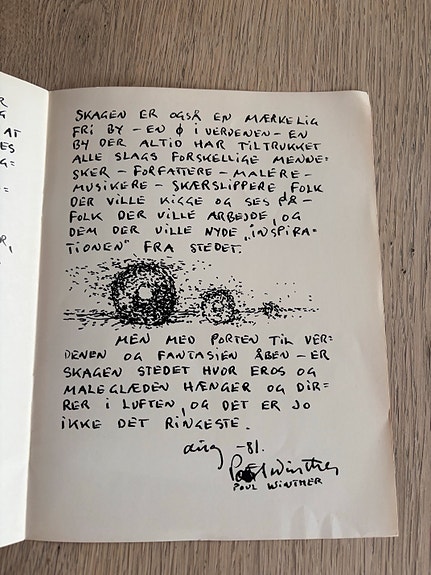 R
G
AT
ES
G=
=
=
R,
SKAGEN ER OGSÅ EN MÆRKELIG
FRI BY - EN Ø I VERDENEN - EN
BY DER ALTID HAR TILTRUKKET
ALLE SLAGS FORSKELLIGE MENNE=
SKER - FORFATTERE - MALERE -
MUSIKERE - SKÆRSLIPPERE FOLK
DER VILLE KIGGE OG SES PÅ -
FOLK DER VILLE ARBEJDE, OG
DEM DER VILLE NYDE „INSPIRA=
TIONEN" FRA STEDET.
MEN MED PORTEN TIL VER=
DENEN OG FANTASIEN ÅBEN - ER
SKAGEN STEDET HVOR EROS OG
MALEGLÆDEN HÆNGER OG DIR=
RER I LUFTEN, OG DET ER JO
IKKE DET RINGESTE.
aug -81.
Poul Winther
POUL WINTHER